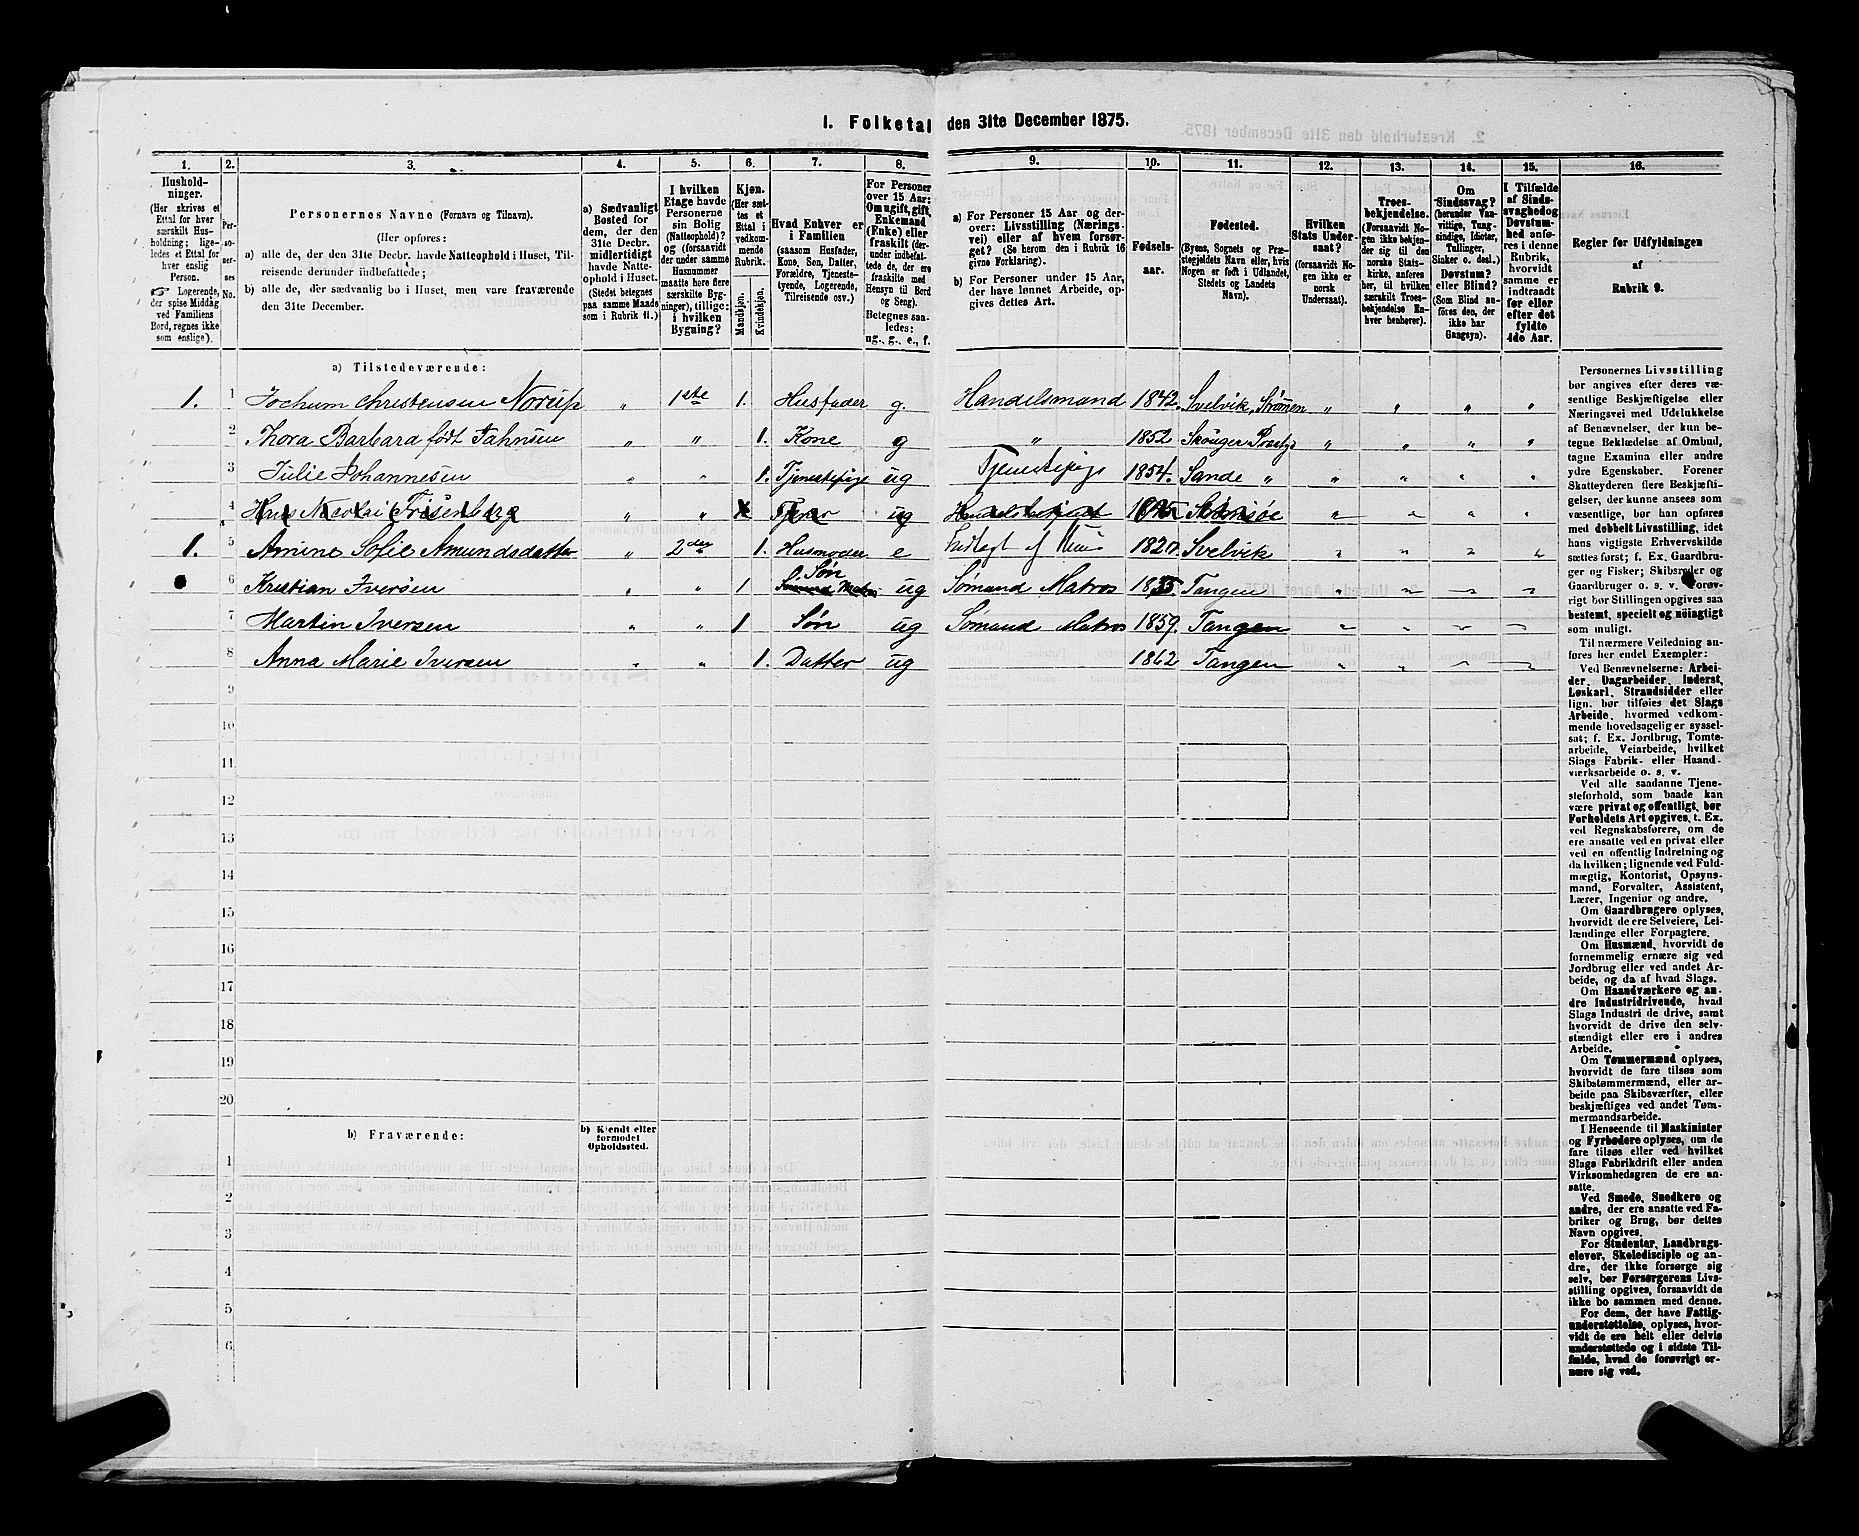 1. Folketal den 31te December 1875.
1. 2. 3. 4. 5. 6. 7. 8. 9. 10. 11. 12. 13. 14. 15. 16.
Husholdninger.
(Her skrives et
Ettal for hver
særskilt Husholdning;
ligeledes et Ettal for
hver enslig
Person.
Logerende,
der spise Middag
ved Familiens
Bord, regnes ikke
som enslige).
Personernes No.
Personernes Navne (Fornavn og Tilnavn).
(Her opføres:
a) alle de, der den 31te Decbr. havde Natteophold i Huset, Tilreisende derunder indbefattede;
b) alle de, der sædvanlig bo i Huset, men vare fraværende
den 31te December.
a) Sædvanligt
Bosted for
dem, der den
31te Decbr.
midlertidigt
havde Natteophold i Huset.
(Stedet betegnes
paa samme Maade
som i Rubrik 11.)
I hvilken
Etage havde
Personerne
sin Bolig
(Natteophold)?
og (forsaavidt
der under samme
Husnummer
maatte høre flere
særskilte Bygninger), tillige:
i hvilken
Bygning?
Kjøn.
(Her sættes et
Ettal i
vedkommende
Rubrik.
Mandkjøn.
Kvindekjøn.
Hvad Enhver er
i Familien
(saasom Husfader,
Kone, Søn, Datter,
Forældre, Tjenestetyende, Logerende,
Tilreisende osv.)
For Personer
over 15 Aar:
Om ugift, gift,
Enkemand
(Enke) eller
fraskilt (derunder indbefattede de, der ere
fraskilte med
Hensyn til Bord
og Seng).
Betegnes saaledes:
ug., g., e., f.
a) For Personer 15 Aar og derover: Livsstilling (Næringsvei) eller af hvem forsørget? (Se herom den i Rubrik 16
givne Forklaring).
b) For Personer under 15 Aar,
der have lønnet Arbeide, opgives dettes Art.
Fødselsaar.
Fødested.
(Byens, Sognets og Præstegjeldets Navn, eller, hvis
Nogen er født i Udlandet,
Stedets og Landets
Navn).
Hvilken
Stats Undersaat?
(forsaavidt Nogen ikke er
norsk
Undersaat).
Troesbekjendelse.
(Forsaavidt Nogen ikke bekjender sig til den
norske Statskirke, anføres
her, til hvilken
særskilt Troesbekjendelse Enhver henhører).
Om
Sindssvag?
(herunder Vanvittige, Tungsindige, Idioter,
Tullinger,
Sinker o. desl.)
Døvstum?
eller Blind?
(Som Blind anføres den, der
ikke har
Gangsyn).
I Tilfælde
af Sindssvaghed og
Døvstumhed anføres i denne
Rubrik,
hvorvidt
samme er
indtraadt
før eller
efter det
fyldte
4de Aar.
Regler for Udfyldningen
af
Rubrik 9.
a) Tilstedeværende:
1. 1 Jochum Christensen Norup „ 1ste 1. Husfader g. Handelsmand 1842. Svelvik, Strømm „ „ „ „
2 Thora Barbara født Jahnsen „ „ 1. Kone g „ 1852. Skouger „ „ „ „
3 Julie Johannesen „ „ 1. Tjenestepige ug Tjenestepige 1854. Sande „ „ „ „ „
4 ug
1. 5 Amine Sofie Amundsdatter „ 2den 1. Husmoder e af 1827. Svelvik „ „ „ „
6 Kristian Iversen „ „ 1 Søn ug Sømand Matros 1855. Tangen „ „ „ „
7 Martin Iversen „ „ 1 Søn ug Sømand Matros 1859. Tangen „ „ „ „
8 Anna Marie Iversen „ „ 1. Datter ug 1862 Tangen „ „ „ „
9
10
11
12
13
14
15
16
17
18
19
20
b) Fraværende:
b) Kjendt eller
formodet
Opholdssted.
1
2
3
4
5
6
Personernes Livsstilling
bør angives efter deres væsentlige Beskjæftigelse eller
Næringsvei med Udelukkelse
af Benævnelser, der kun betegne Beklædelse af Ombud,
tagne Examina eller andre
ydre Egenskaber. Forener
Skatteyderen flere Beskjæftigelser, der kunne ansees som
væsentlige, bør han opføres
med dobbelt Livsstilling, idet
hans vigtigste Erhvervskilde
sættes først; f. Ex. Gaardbruger og Fisker; Skibsreder og
Gaardbruger o. s. v. Forøvrigt bør Stillingen opgives saa
bestemt, specielt og nøiagtigt
som muligt.
Til nærmere Veiledning anføres her endel Exempler:
Ved Benævnelserne: Arbeider, Dagarbeider, Inderst,
Løskarl, Strandsidder eller
lign. bør tilføies det Slags
Arbeide, hvormed vedkommende hovedsagelig er sysselsat; f. Ex. Jordbrug, Tomtearbeide, Veiarbeide, hvilket
Slags Fabrik- eller Haandværksarbeide o. s. v.
Ved alle saadanne Tjenesteforhold, som baade kan
være privat og offentligt, bør
Forholdets Art opgives, t. Ex.
ved Regnskabsførere, om de
ere ansatte ved en privat eller
ved en offentlig Indretning og
da hvilken; lignende ved Fuldmægtig, Kontorist, Opsynsmand, Forvalter, Assistent,
Lærer, Ingeniør og andre.
Om Gaardbrugere oplyses,
hvorvidt de ere Selveiere, Leilændinge eller Forpagtere.
Om Husmænd, hvorvidt de
fornemmelig ernære sig ved
Jordbrug eller ved andet Arbeide, og da af hvad Slags.
Om Haandværkere og andre Industridrivende, hvad
Slags Industri de drive, samt
hvorvidt de drive den selvstændigt eller ere i andres
Arbeide.
Om Tømmermænd oplyses,
hvorvidt de fare tilsøs som
Skibstømmermænd, eller arbeide paa Skibsværfter, eller
beskjæftiges ved andet Tømmermandsarbeide.
I Henseende til Maskinister
og Fyrbødere oplyses, om de
fare tilsøs eller ved hvilket
Slags Fabrikdrift eller anden
Virksomhedsgren de ere ansatte.
Ved Smede, Snedkere og
andre, der ere ansatte ved Fabriker og Brug, bør dettes
Navn opgives.
For Studenter, Landbrugselever, Skoledisciple og andre, der ikke forsørge sig
selv, bør Forsørgerens Livsstilling opgives, forsaavidt de
ikke bo sammen med denne.
For dem, der have Fattigunderstøttelse, oplyses, hvorvidt de ere helt eller delvis
understøttede og i sidste Tilfælde, hvad de forøvrigt ernære sig ved.